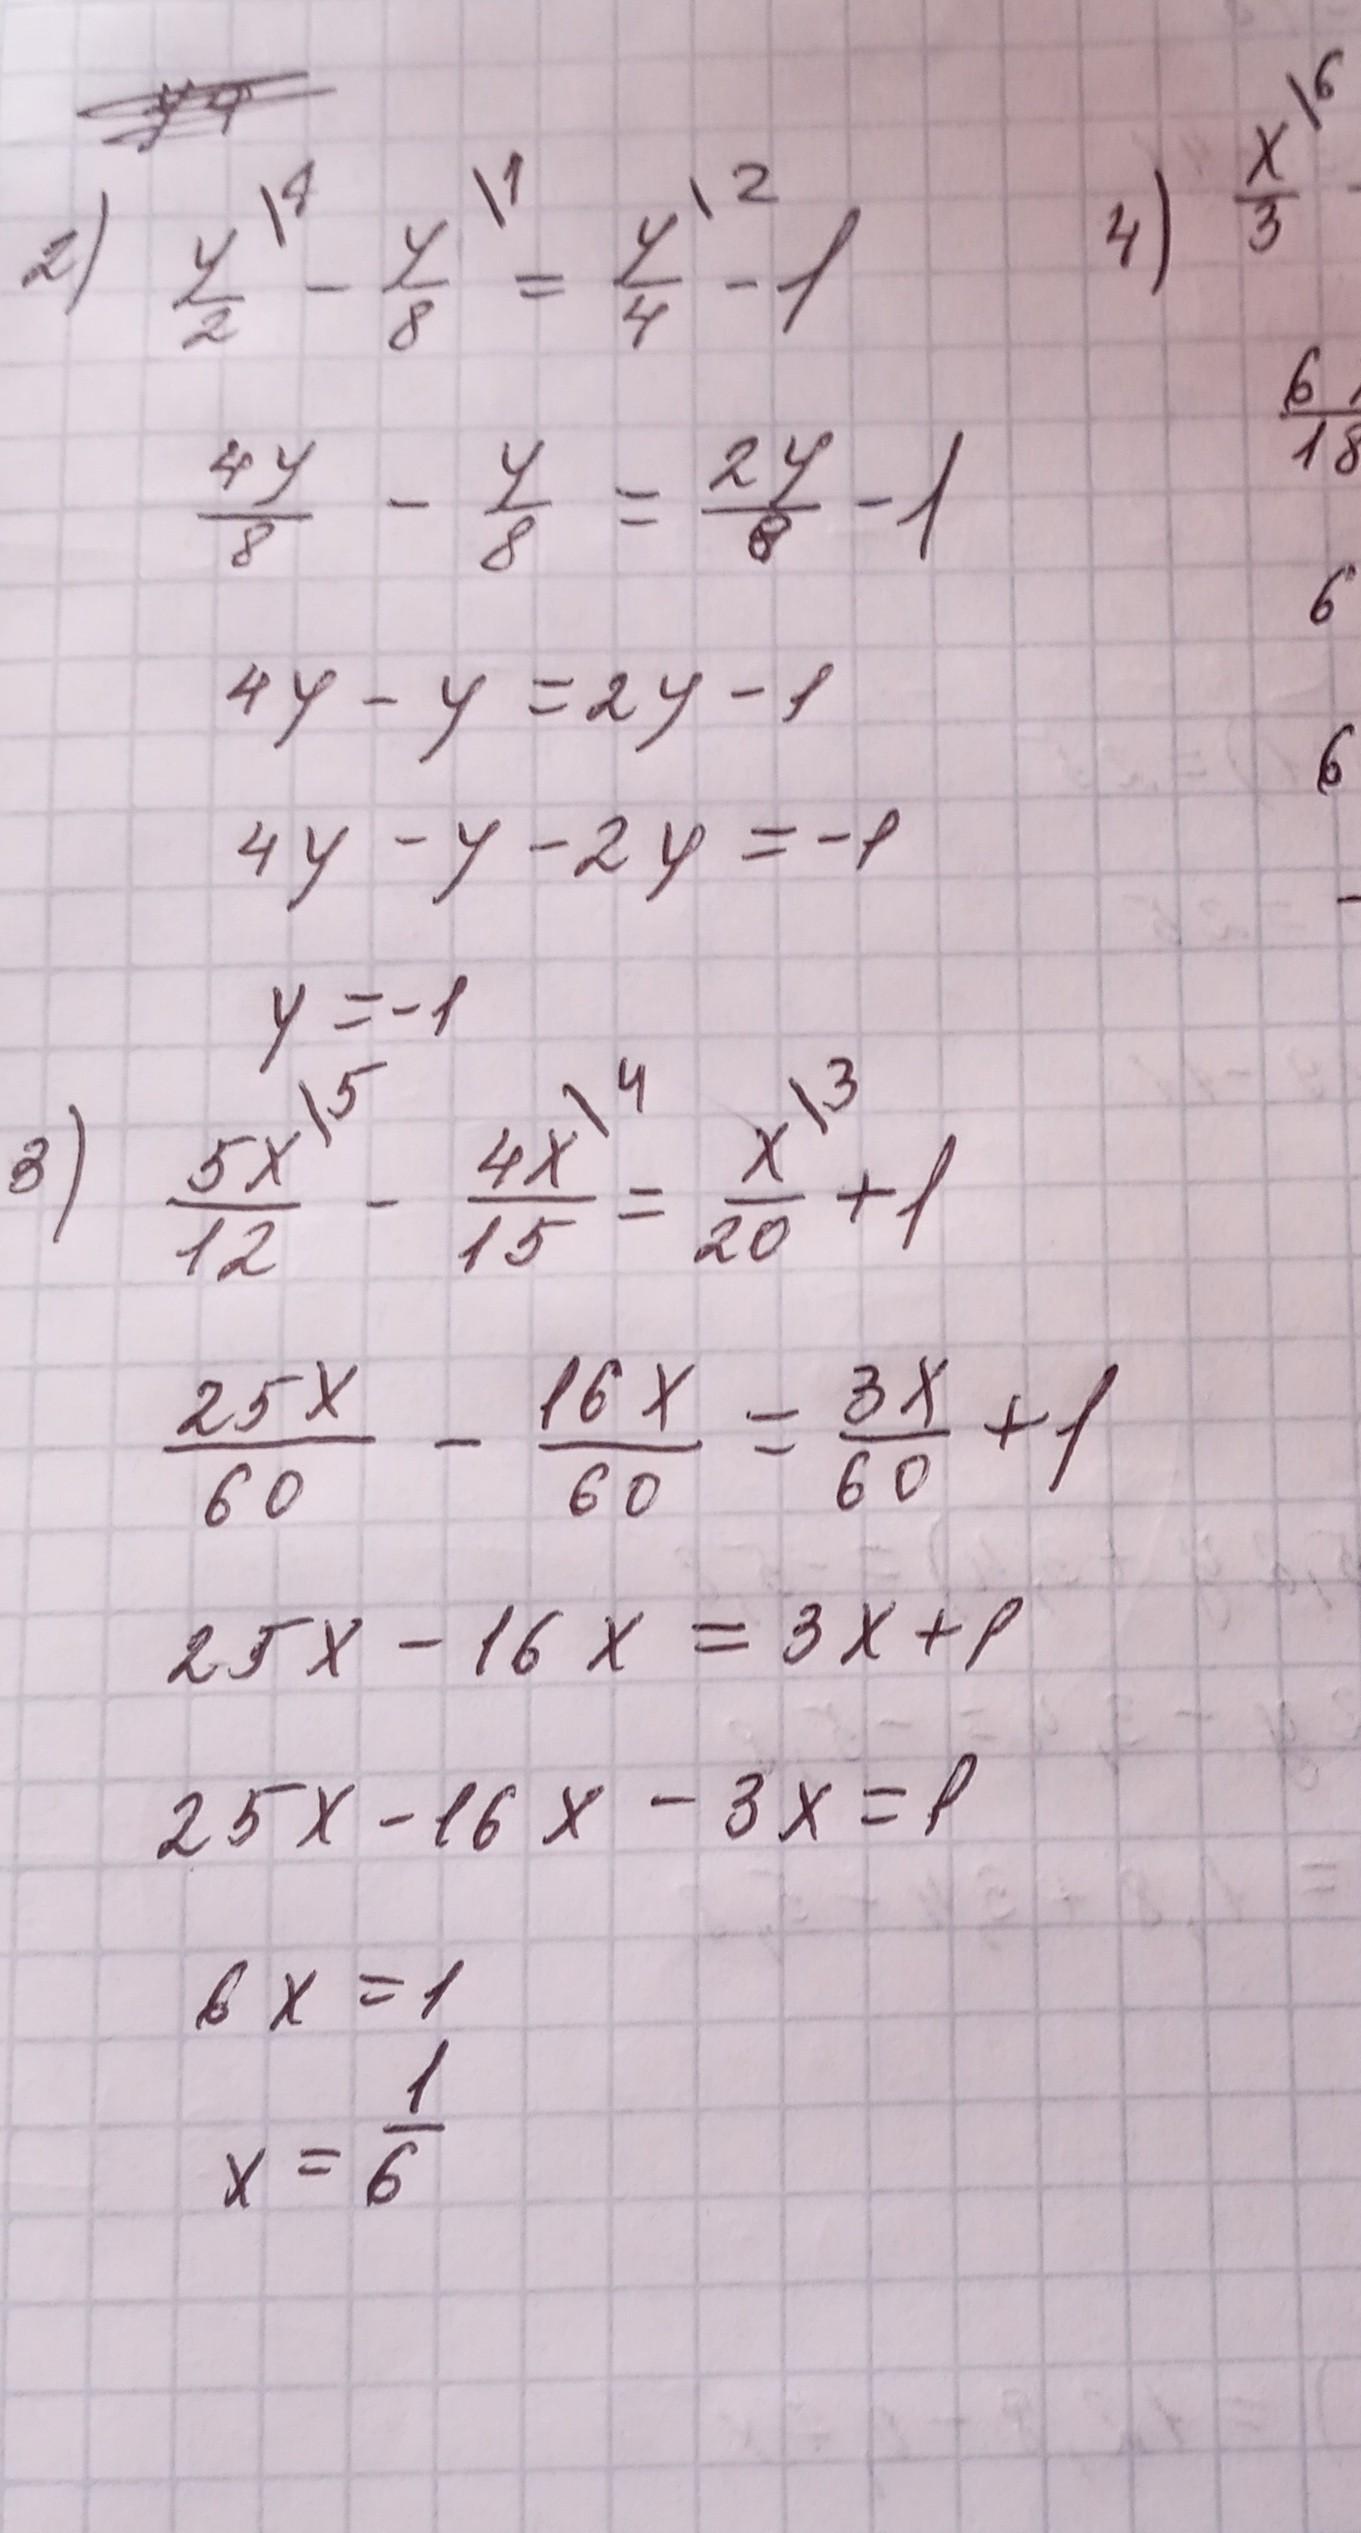 2) y/2 \4 - y/8 \1 = y/4 \2 - 1
4y/8 - y/8 = 2y/8 - 1
4y - y = 2y - 1
4y - y - 2y = -1
y = -1
3) 5x/12 \5 - 4x/15 \4 = x/20 \3 + 1
25x/60 - 16x/60 = 3x/60 + 1
25x - 16x = 3x + 1
25x - 16x - 3x = 1
6x = 1
x = 1/6
4) x/3 \6 -
6/18
6
6
-